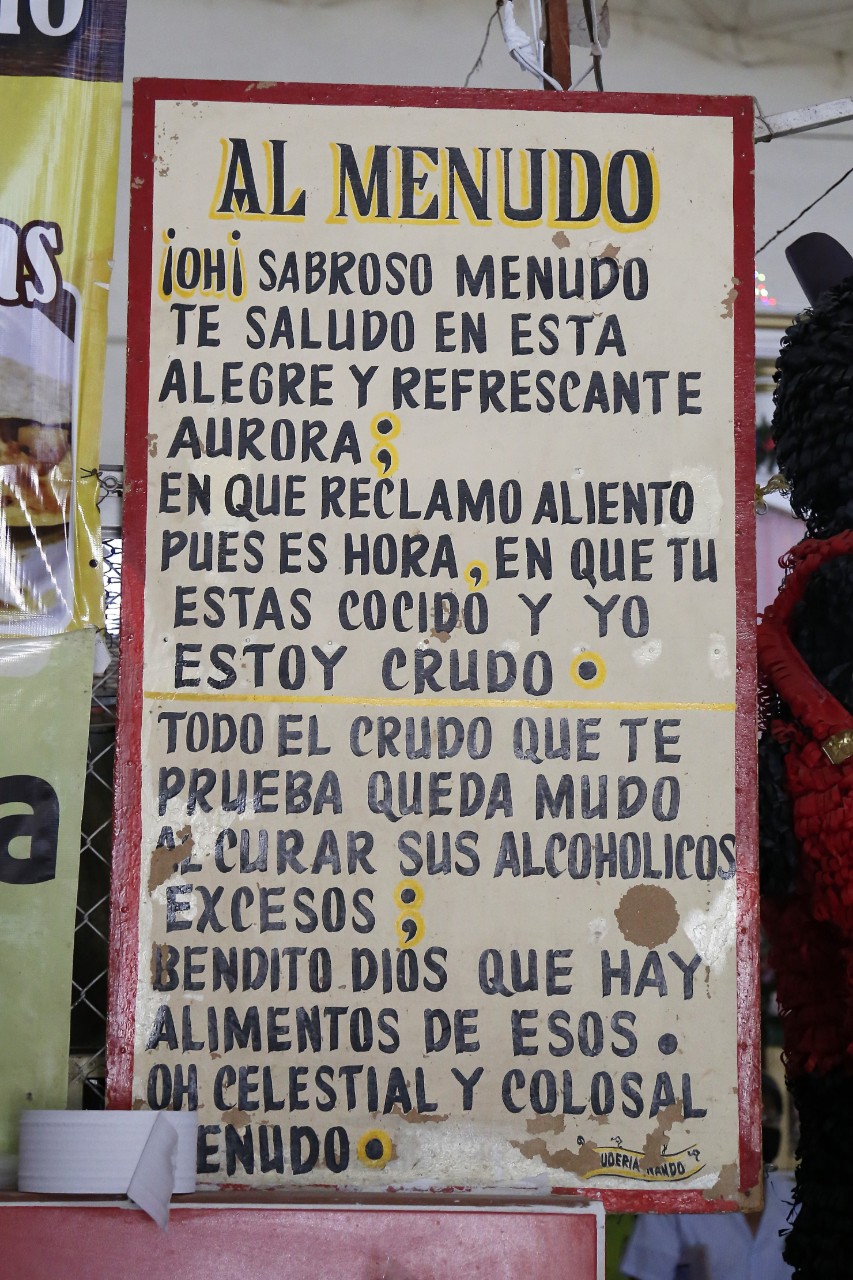 AL MENUDO
¡OH¡ SABROSO MENUDO
TE SALUDO EN ESTA
ALEGRE Y REFRESCANTE
AURORA ;
EN QUE RECLAMO ALIENTO
PUES ES HORA , EN QUE TU
ESTAS COCIDO Y YO
ESTOY CRUDO .
TODO EL CRUDO QUE TE
PRUEBA QUEDA MUDO
AL CURAR SUS ALCOHOLICOS
EXCESOS ;
BENDITO DIOS QUE HAY
ALIMENTOS DE ESOS .
OH CELESTIAL Y COLOSAL
ENUDO .